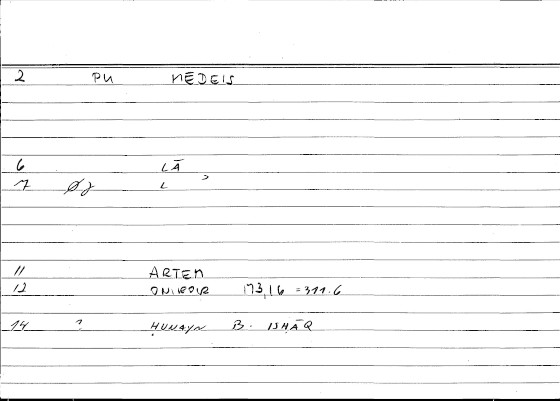 2 PN MĒDEIS
6 LĀ
7 Øj L ʾ
11 ARTEM
12 ONIROCR 173,16 = 311.6
14 ? ḤUNAYN B. ISḤĀQ